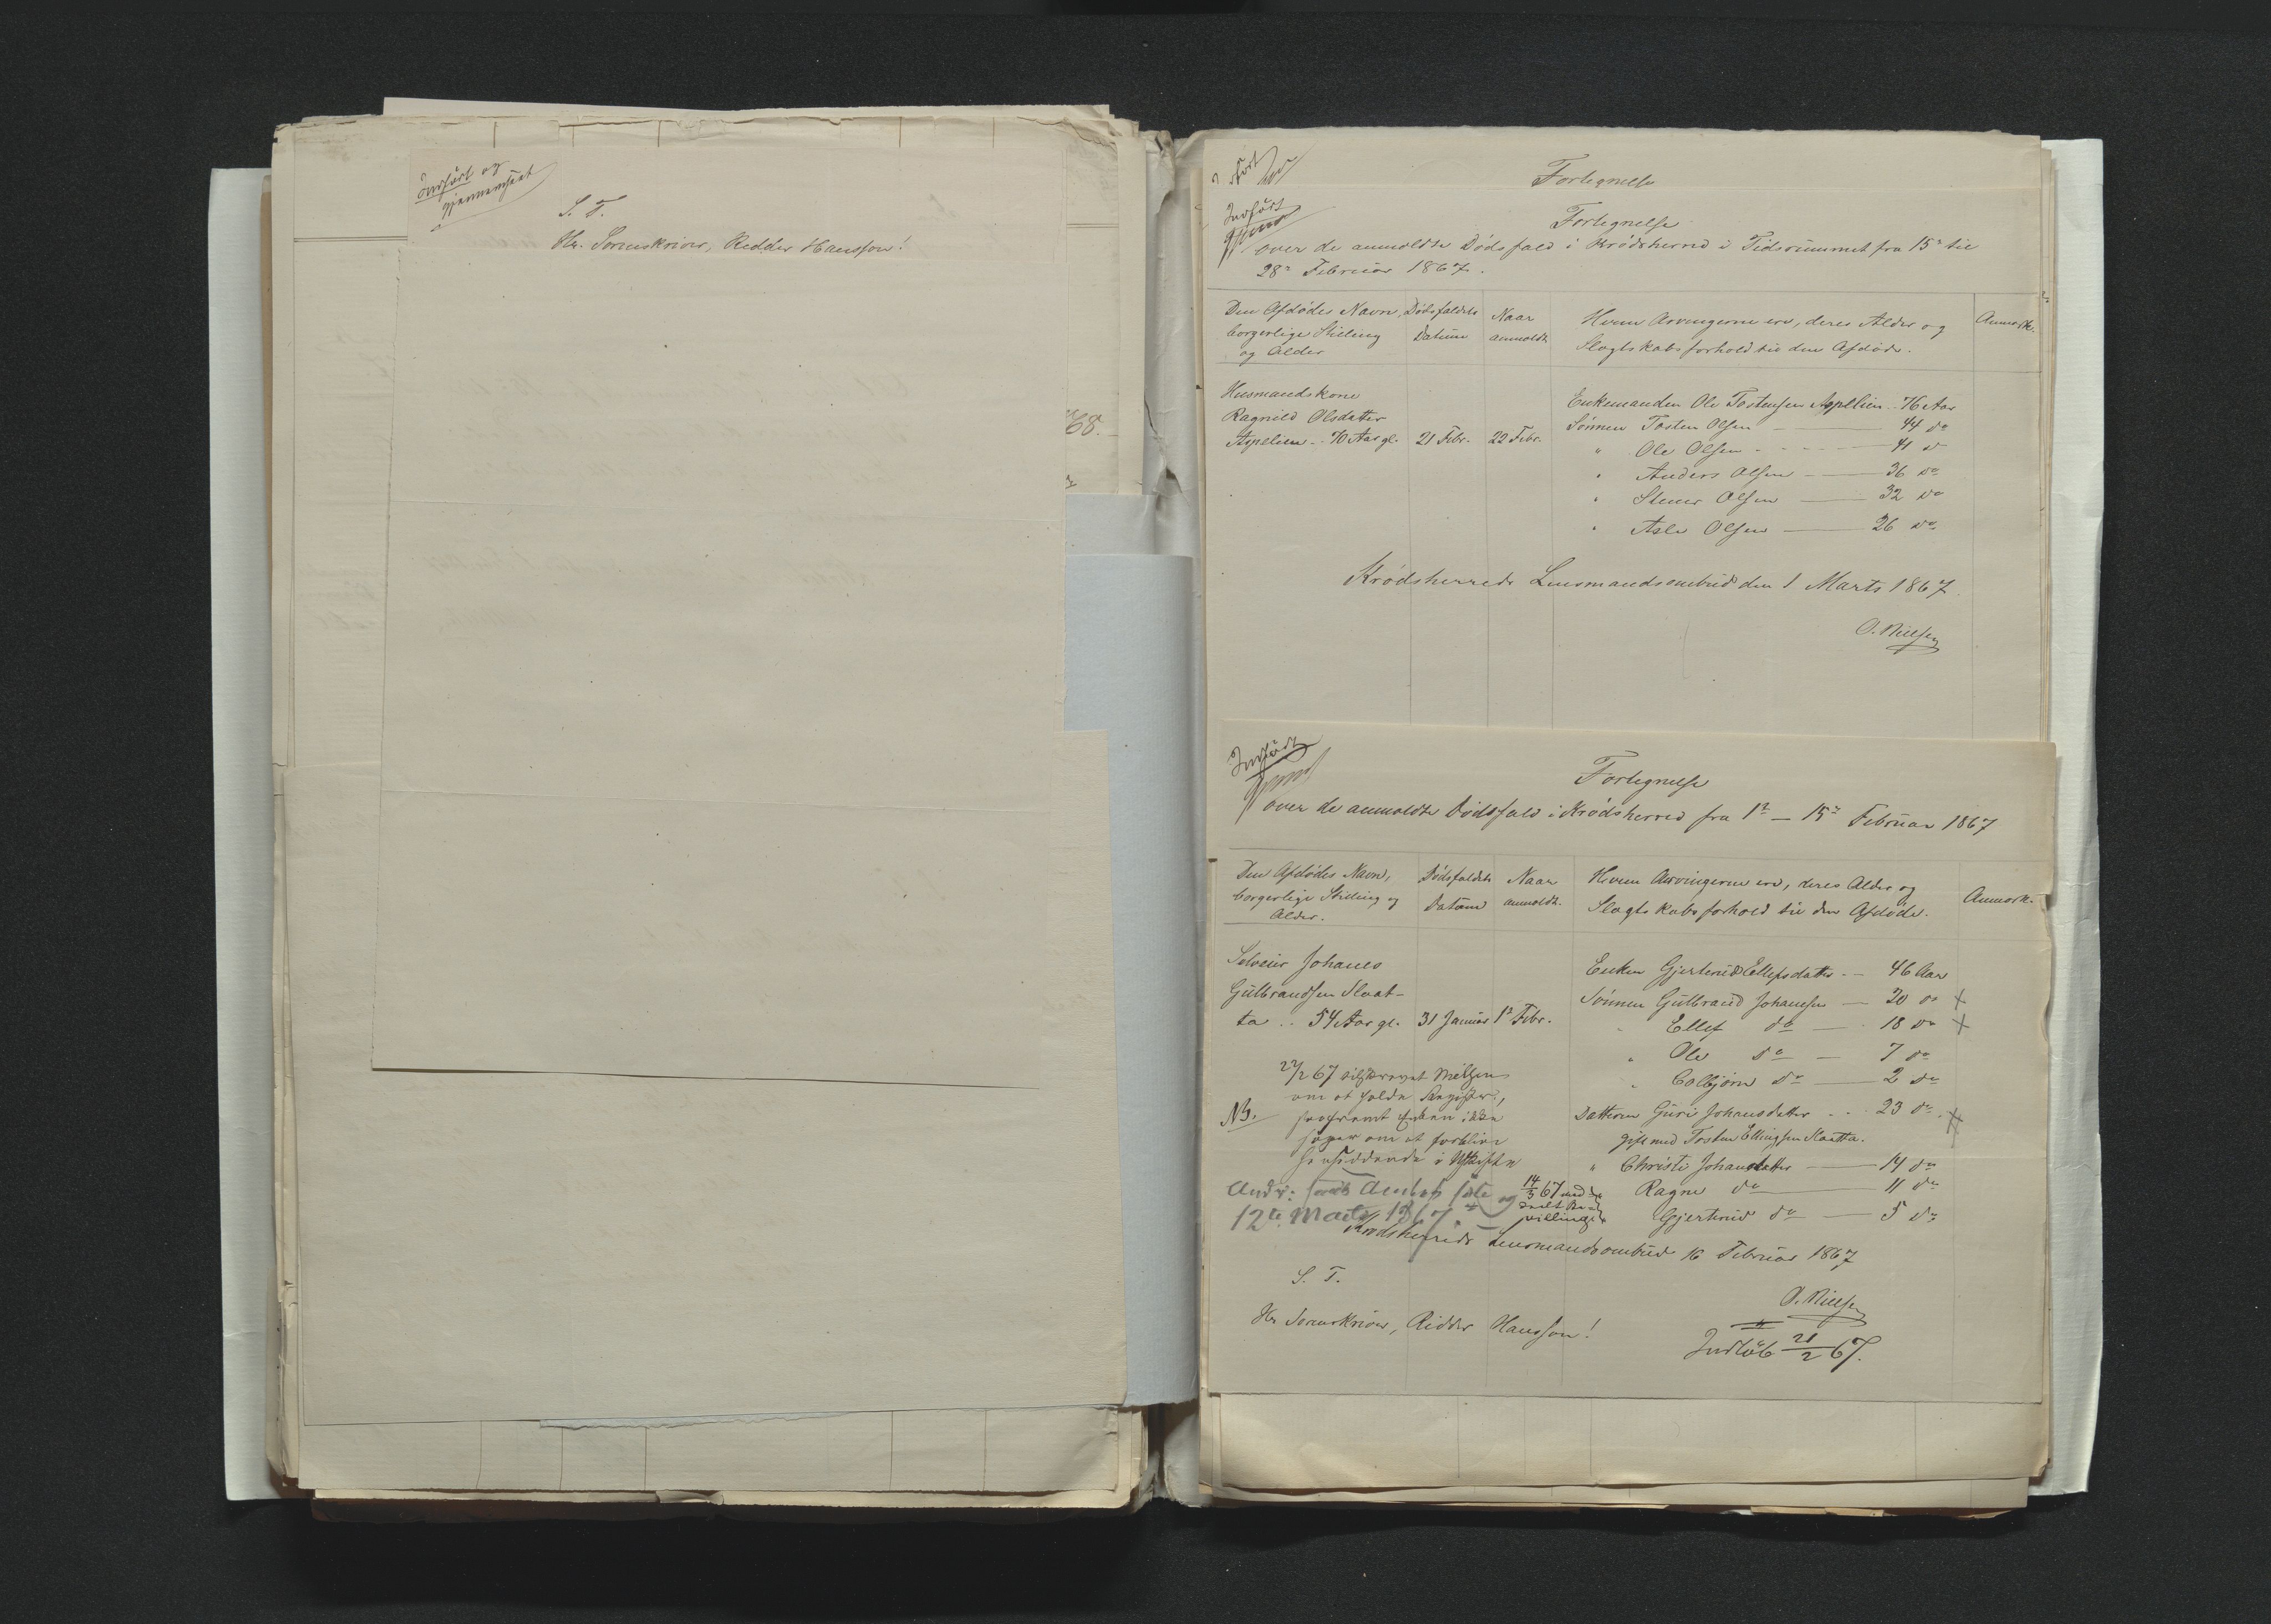 Indført og
gjennemseet
S. T.
Hr. Sorenskriver, Ridder Hansson!
68.
Fortegnelse
Indført
Fortegnelse
over de anmeldte Dødsfald i Krødsherred i Tidsrummet fra 15de til
28de Februar 1867.
Den Afdødes Navn, borgerlige Stilling og Alder
Dødsfaldets Datum
Naar anmeldt
Hvem Arvingerne ere, deres Alder og Slægtskabsforhold til den Afdøde.
Anmærk.
Husmandskone
Ragnild Olsdatter
Aspelien .. 70 Aar gl. 21 Febr. 22 Febr.
Enkemanden Ole Tostensen Aspelien .. 76 Aar
Sønnen Tosten Olsen — 44 do
" Ole Olsen — 41 do
" Anders Olsen — 36 do
" Stener Olsen — 32 do
" Asle Olsen — 26 do
Krødsherreds Lensmandsombud den 1 Marts 1867
O. Nielsen
Indført
Fortegnelse
over de anmeldte Dødsfald i Krødsherred fra 1de — 15de Februar 1867
Den Afdødes Navn, borgerlige Stilling og Alder.
Dødsfaldets Datum
Naar anmeldt.
Hvem Arvingerne ere, deres Alder og Slægtskabsforhold til den Afdøde.
Anmærk.
Selveier Johanes
Gulbrandsen Slaat-
ta .. 54 Aar gl. 31 Januar 1de Febr.
Enken Gjertrud Ellefsdatter .. 46 Aar
Sønnen Gulbrand Johansen — 20 do +
" Ellef do — 18 do +
" Ole do — 7 do
" Colbjørn do — 2 do
Datteren Guri Johansdatter ... 23 do
gift med Tosten Ellingsen Slaatta.
" Christi Johansdatter — 14 do
Ragne do — 11 do
Gjertrud do — 5 do
22/2 67 tilskrevet Nielsen
om at holde Registr.,
NB. saafremt Enken ikke
søger om at forblive
hensiddende i Uskifte
12te Marts 1867.
14/3 67
Krødsherreds Lensmandsombud 16 Februar 1867
O. Nielsen
S. T.
Hr Sorenskriver, Ridder Hansson!
Indløb 21/2 67.